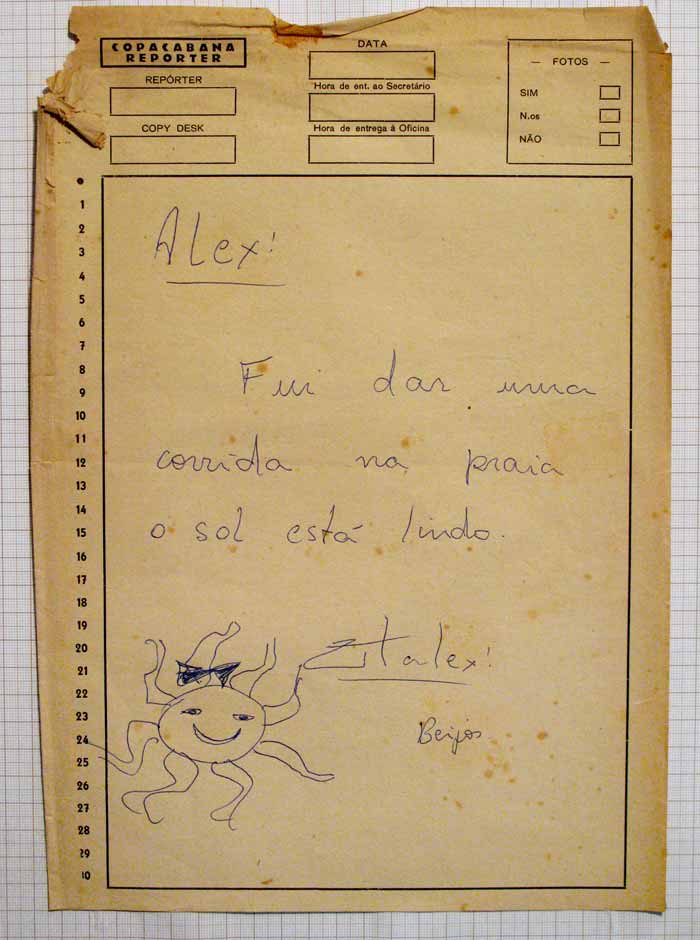 COPACABANA
REPORTER
REPÓRTER
COPY DESK
DATA
Hora de ent. ao Secretário
Hora de entrega à Oficina
— FOTOS —
SIM
N.os
NÃO
1
2
3
4
5
6
7
8
9
10
11
12
13
14
15
16
17
18
19
20
21
22
23
24
25
26
27
28
29
10
Alex!
Fui dar uma
corrida na praia
o sol está lindo.
Beijos